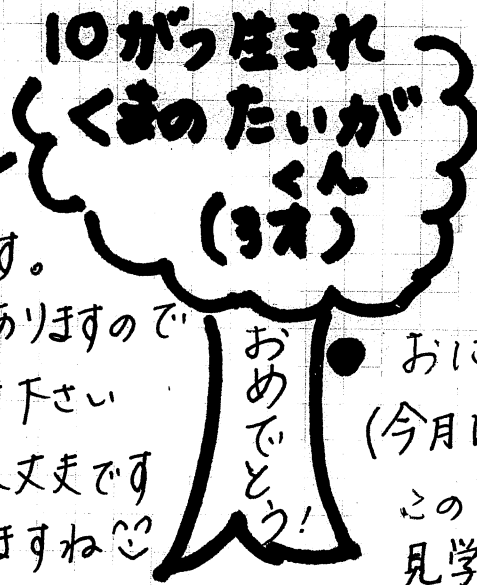 10がつ生まれ
くまの たいが
くん
(3才)
おめでとう!
す。
ありますので
下さい
丈夫です
ますね
おに
(今月
この
見学